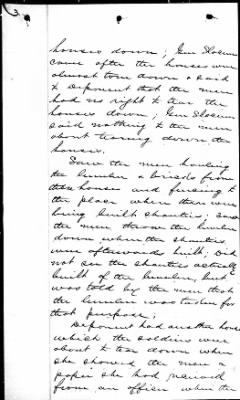 houses down; Gen Slocum
came after the houses were
almost torn down & said
to deponent that the men
had no right to tear the
houses down; Gen Slocum
said nothing to the men
about tearing down the
houses.
Saw the men hauling
the lumber & bricks from
the houses and
the place where there were
being built shanties; saw
the men throw the lumber
down where the shanties
were afterwards built; Did
not see the shanties actually
built of the lumber, but
was told by the men that
the lumber was taken for
that purpose;
Deponent had another house
which the soldiers were
about to tear down when
she showed the men a
paper she had received
from an officer when the